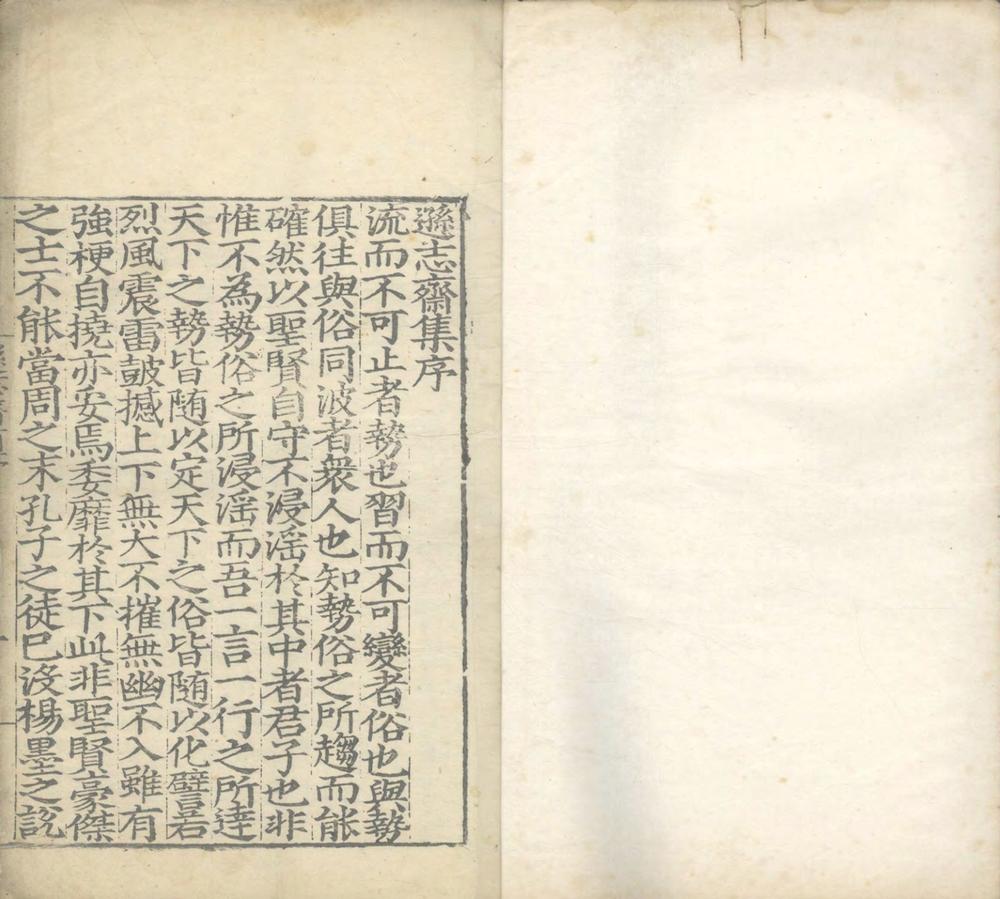 遜志齋集序
流而不可止者勢也習而不可變者俗也與勢
俱往與俗同波者衆人也知勢俗之所趨而能
確然以聖賢自守不浸滛於其中者君子也非
惟不為勢俗之所浸滛而吾一言一行之所逹
天下之勢皆随以定天下之俗皆随以化譬若
烈風震雷皷撼上下無大不摧無幽不入雖有
強梗自撓亦安焉委靡於其下此非聖賢豪傑
之士不能當周之末孔子之徒已沒楊墨之説